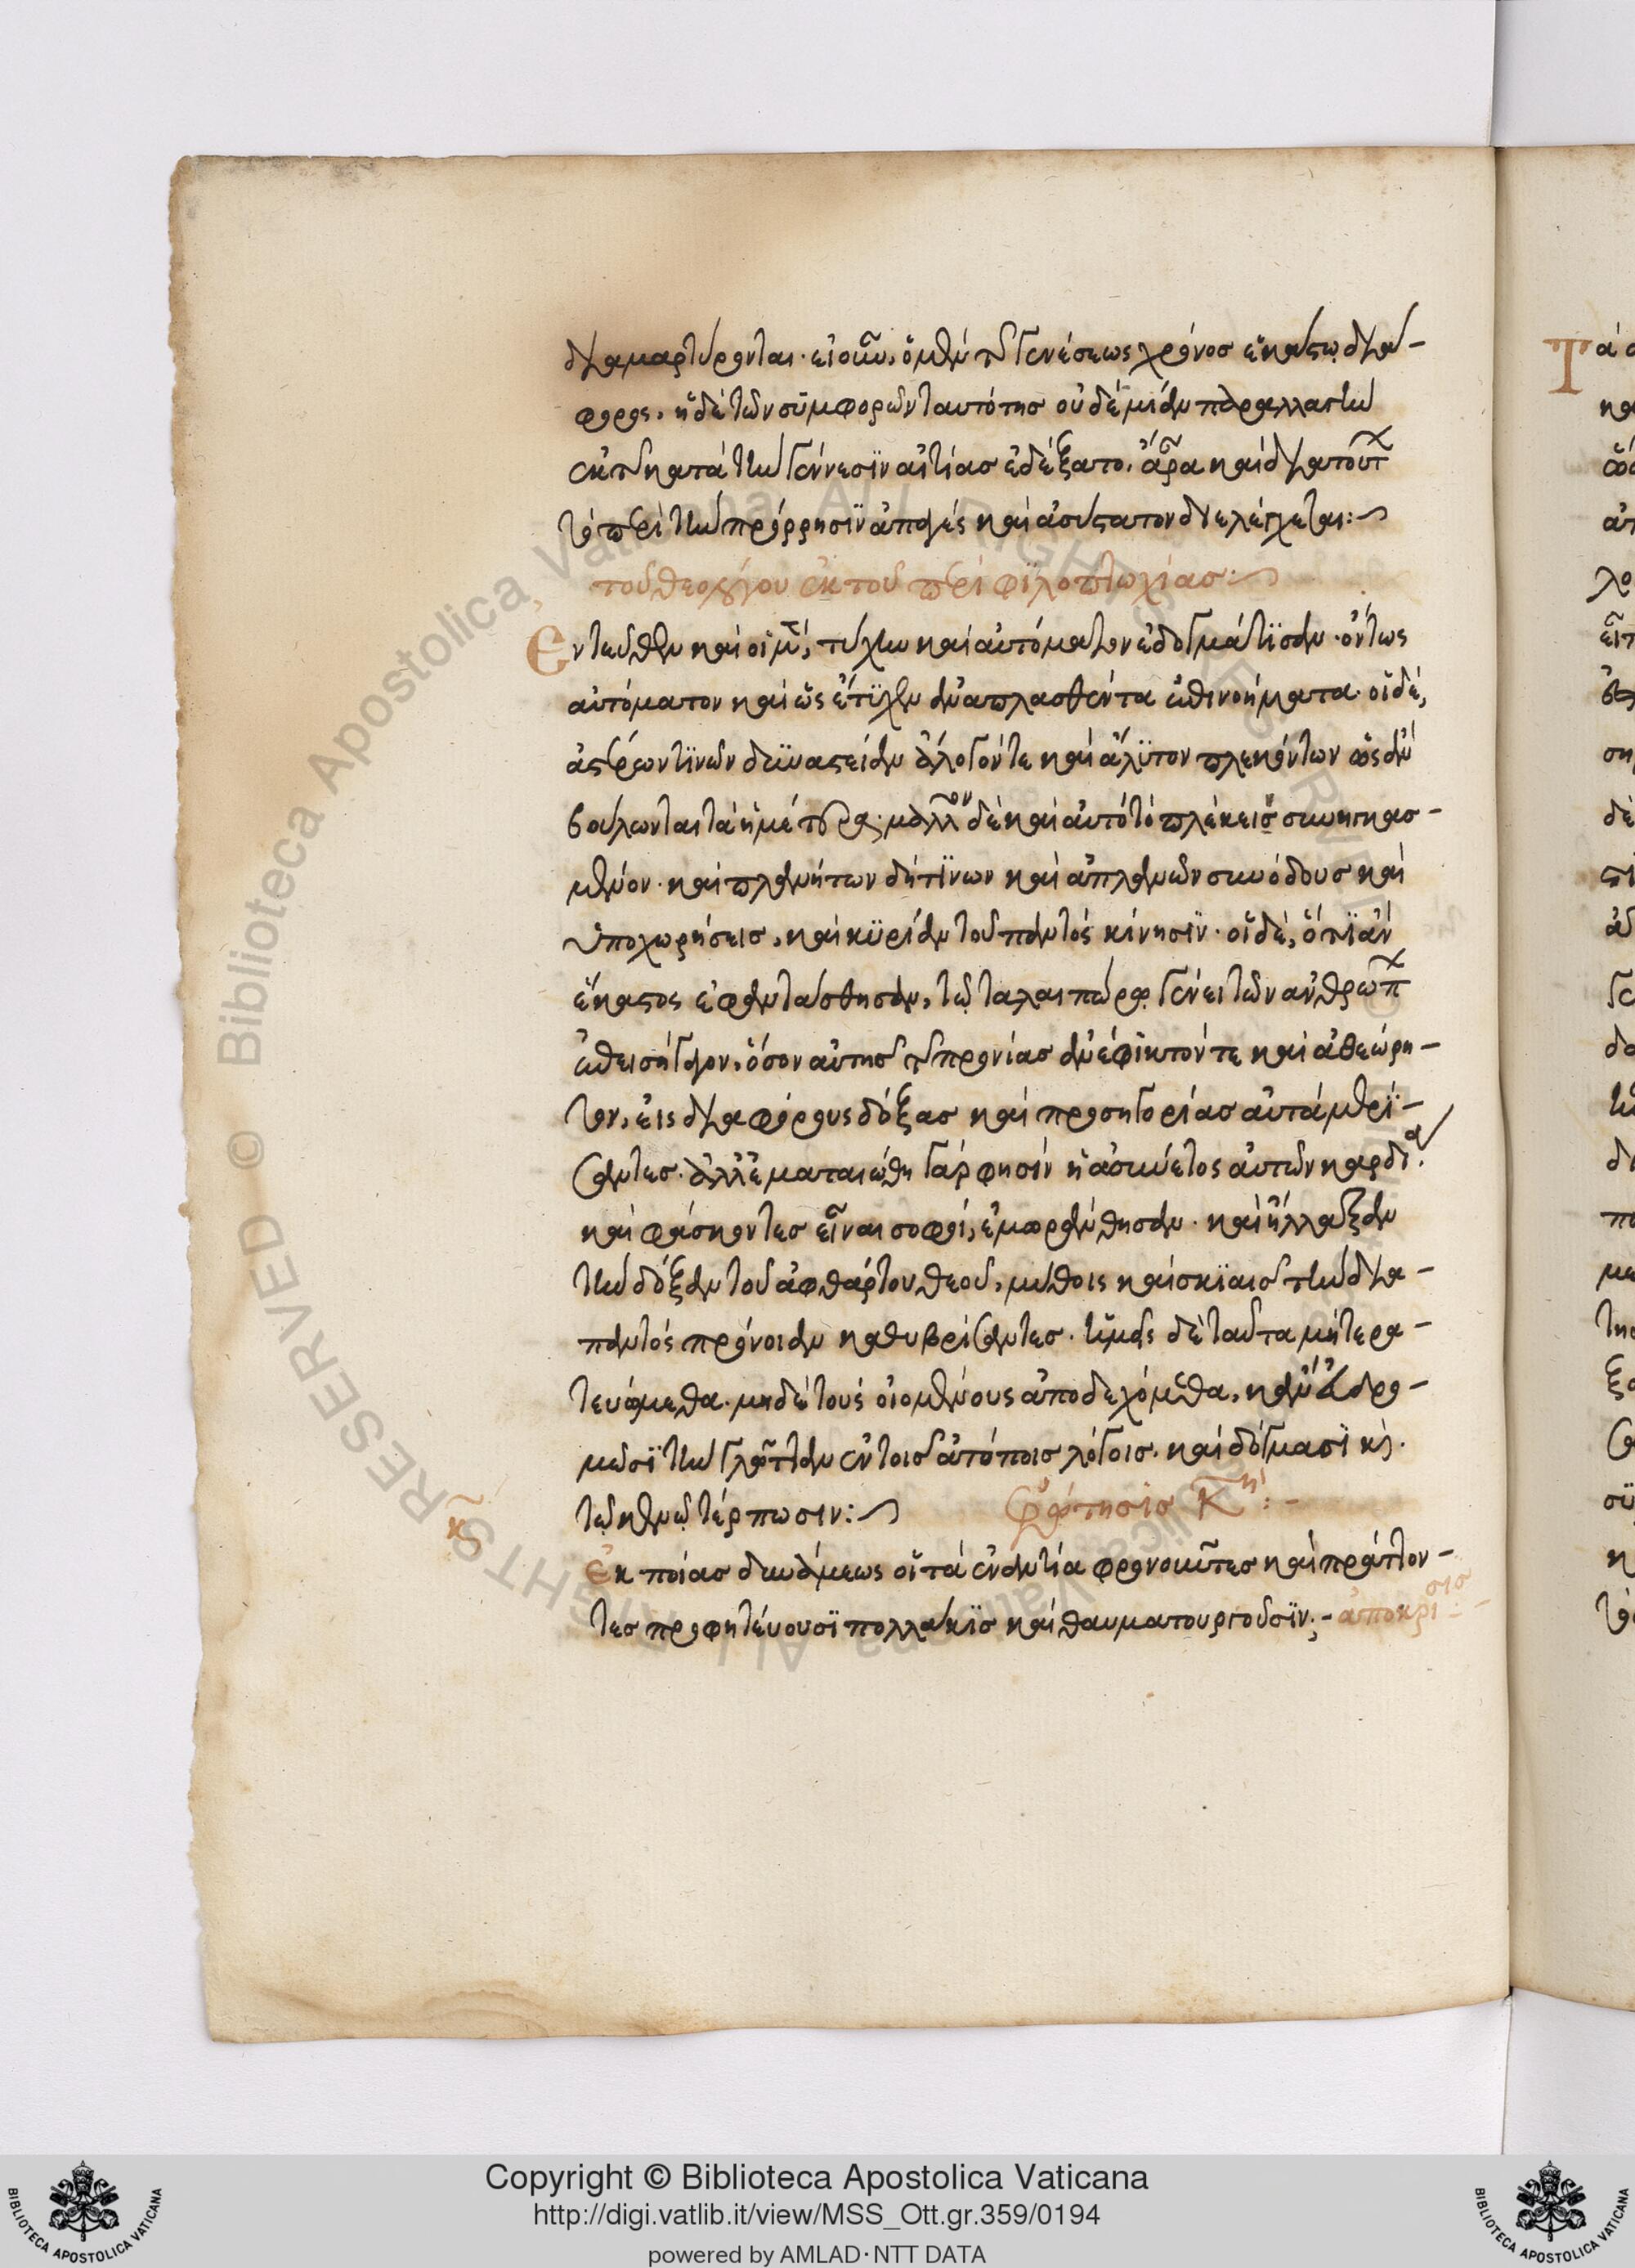 διαμαρτύρονται· εἰ οὖν, ὁ μὲν τῆς γενέσεως χρόνος ἑκάστῳ διά-
φορος, ἡ δὲ τῶν συμφορῶν ταυτότης οὐδεμίαν παραλλαγὴν
ἐκ τῆς κατὰ τὴν γέννεσϊν αἰτίας ἐδέξατο, ἆρα καὶ διὰ τοῦτ
τὸ περὶ τὴν πρόρρησϊν ἀπαγὲς καὶ ἀσύστατον διελέγχεται:~
τοῦ θεολόγου ἐκ τοῦ περὶ φϊλοπτωχίας:~
Εντεῦθεν καὶ οἱ μὲν, τύχην καὶ αὐτόματον ἐδογμάτϊσαν· ὄντως
αὐτόματον καὶ ὡς ἔτϋχεν ἀναπλασθέντα ἐπινοήματα· οἱ δὲ,
ἀστέρων τϊνῶν δϋναστείαν ἄλογόν τε καὶ ἄλϋτον πλεκόντων ὡς ἂν
βούλωνται τὰ ἡμέτερα· μᾶλλον δὲ καὶ αὐτὸ τὸ πλέκειν συνηναγκασ-
μένον· καὶ πλανήτων δή τϊνων καὶ ἀπλανῶν συνόδους καὶ
ὑποχωρήσεις, καὶ κϋρίαν τοῦ παντὸς κίνησϊν· οἱ δὲ, ὅ τϊ ἂν
ἕκαστος ἐφαντάσθησαν, τῷ ταλαιπώρῳ γένει τῶν ἀνθρώπ
ἐπεισήγαγον, ὅσον αὐτῆς τῆς προνίας ἀνέφϊκτόν τε καὶ ἀθεώρη-
τον, εἰς διαφόρους δόξας καὶ προσηγορίας αὐτὰ μερί-
σαντες· ἀλλ' ἐματαιώθη γάρ φησὶν ἡ ἀσύνετος αὐτῶν καρδία.
καὶ φάσκοντες εἶναι σοφοὶ, ἐμωράνθησαν· καὶ ἤλλαξαν
τὴν δόξαν τοῦ ἀφθάρτου θεοῦ, μύθοις καὶ σκϊαῖς τὴν δια-
παντὸς πρόνοιαν καθυβρίσαντες· ἡμεῖς δὲ ταῦτα μὴ τερα-
τευόμεθα· μηδὲ τοὺς οἰομένους ἀποδεχόμεθα, κἂν ἁδρο-
μῶσϊ τὴν γλῶτταν ἐν τοῖς ἀτόποις λόγοις· καὶ δόγμασϊ κὶ.
τῷ κενῷ τέρπωσιν:~ Ερώτησις κη':-
κη
Ἐκ ποίας δυνάμεως οἱ τὰ ἐναντία φρονοῦντες καὶ πράττον-
τες προφητεύουσϊ πολλάκϊς καὶ θαυματουργοῦσϊν;- ἀπόκρισις:-